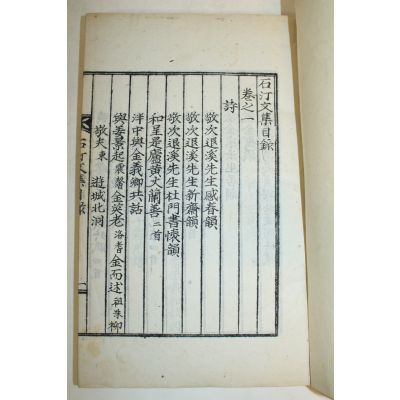 石汀文集目録
卷之一
詩
敬次退溪先生感春韻
敬次退溪先生新齋韻
敬次退溪先生杜門書懷韻
和呈是廬黃丈蘭善二首
泮中與金義卿共話
與姜景起震馨金英老洛耆金而述祖永柳
敬夫東 遊城北洞
石汀文集目録 一